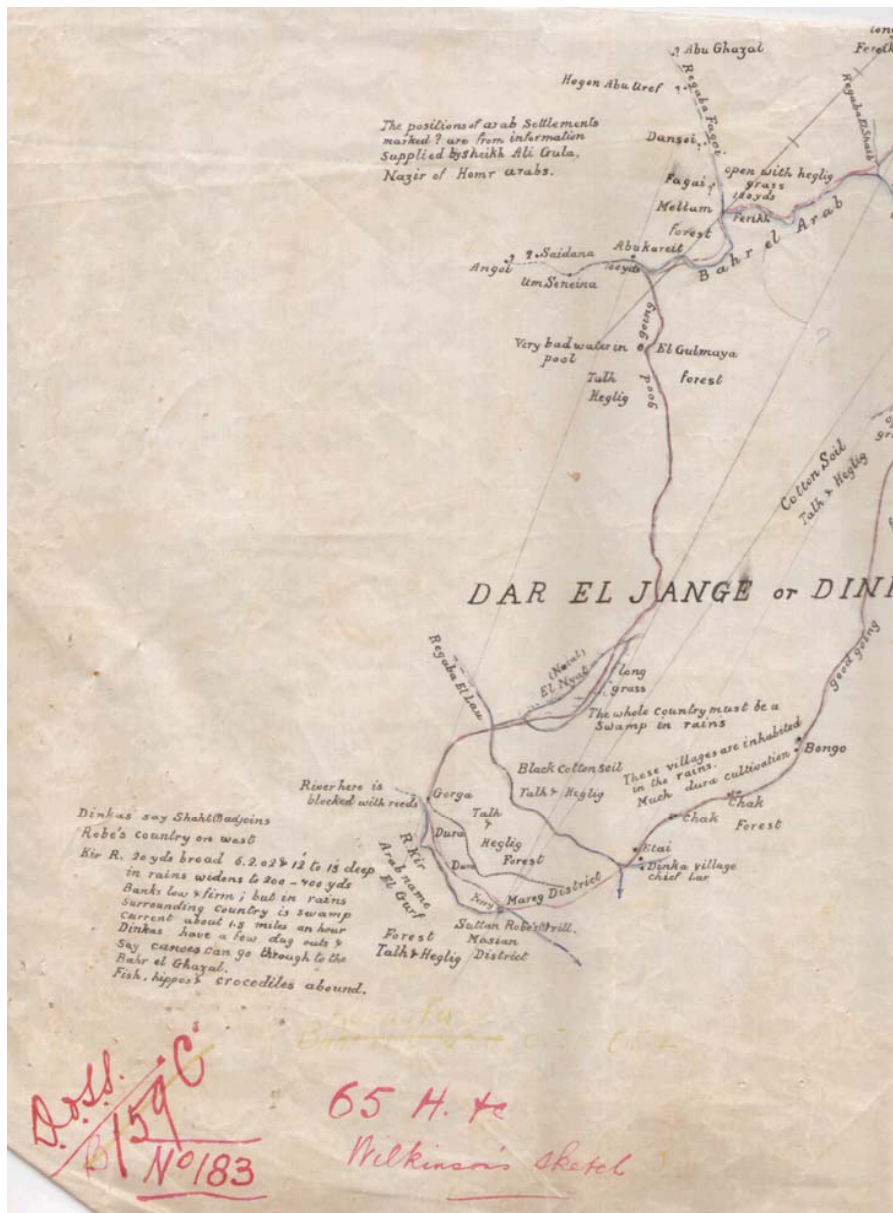 ? Abu Ghazal
Hogon Abu Uref ?
Regaba Fagai
Ferik
Regaba El Shaib
The positions of arab Settlements
marked ? are from information
Supplied by Sheikh Ali Gula,
Nazir of Homr arabs.
Dansoi ?
Fagai ?
open with heglig
grass
120yds
Mellum
Ferikh
forest
Bahr el Arab
? ? Saidana
Abukareit
Angol
Um Seneina
?
good going
Very bad water in
pool
El Gulmaya
Talh
Heglig
forest
Cotton Soil
Talh & Heglig
DAR EL JANGE or DIN
good going
Regaba El Lau
(Nyat)
El Nyat
long
grass
The whole country must be a
Swamp in rains
These villages are inhabited
in the rains.
Much dura cultivation
Bongo
Black Cotton soil
Talh & Heglig
River here is
blocked with reeds
Gorga
Chak
Chak
Forest
Talh
&
Heglig
Forest
Dura
Dura
R. Kir
Arab name
El Gurf
Etai
Dinka village
chief Lar
Mareg District
Ferry
Sultan Rob's Vill.
Massian
District
Forest
Talh & Heglig
Dinkas say joins
Robe's country on west
Kir R. 20 yds broad 6.2.02 & 12 to 15 deep
in rains widens to 200 - 400 yds
Banks low & firm; but in rains
Surrounding country is swamp
Current about 1.5 miles an hour
Dinkas have a few dug outs &
Say canoes can go through to the
Bahr el Ghazal.
Fish, hippos & crocodiles abound.
D.O.S.S.
B/159 C
No 183
65 H. &c
Wilkinson's sketch